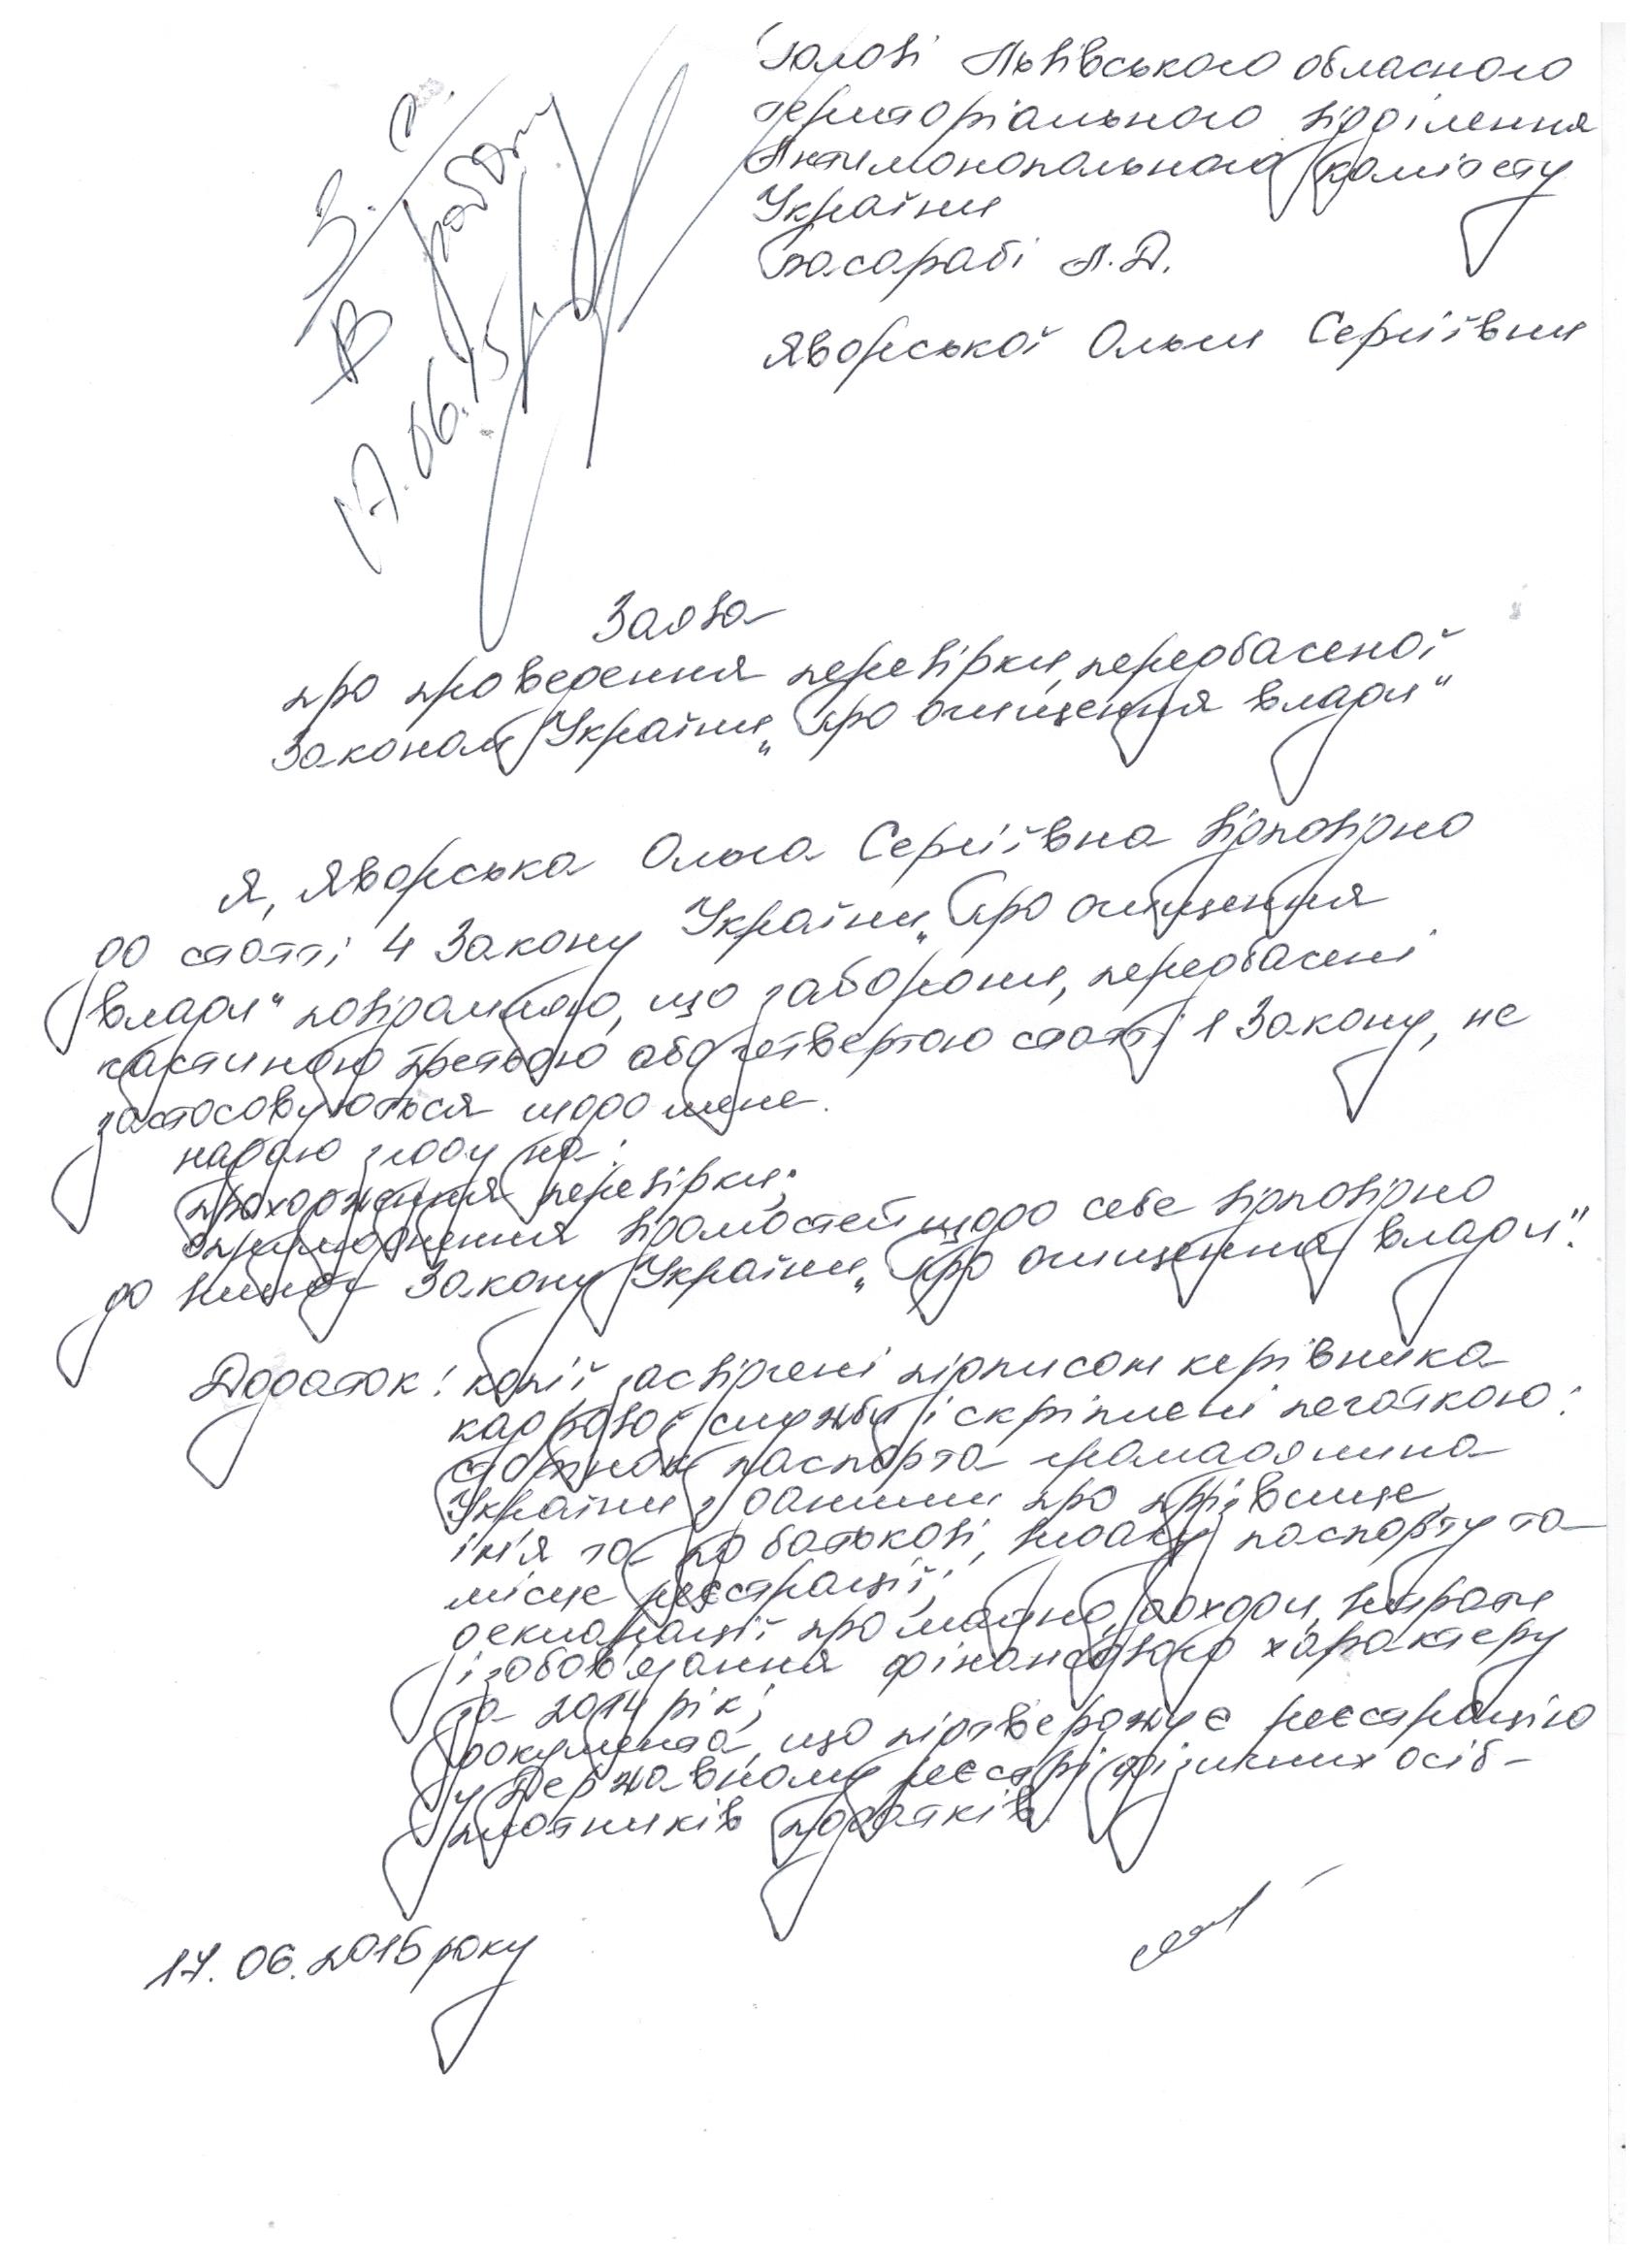 Голові Львівського обласного
територіального відділення
Антимонопольного комітету
України
Басарабі Л.Д.
Яворської Ольги Сергіївни
В роботу
17.06.15
Заява
про проведення перевірки, передбаченої
Законом України „Про очищення влади"
Я, Яворська Ольга Сергіївна відповідно
до статті 4 Закону України „Про очищення
влади" повідомляю, що заборони, передбачені
частиною третьою або четвертою статті 1 Закону, не
застосовуються щодо мене.
Надаю згоду на:
проходження перевірки;
оприлюднення відомостей щодо себе відповідно
до вимог Закону України „Про очищення влади".
Додаток: копії засвідчені підписом керівника
кадрової служби і скріплені печаткою:
сторінок паспорта громадянина
України з даними про прізвище,
ім'я та по батькові, видачу паспорту та
місце реєстрації;
декларації про майно, доходи, витрати
і зобов'язання фінансового характеру
за 2014 рік;
документа, що підтверджує реєстрацію
у Державному реєстрі фізичних осіб-
платників податків.
17.06.2015 року